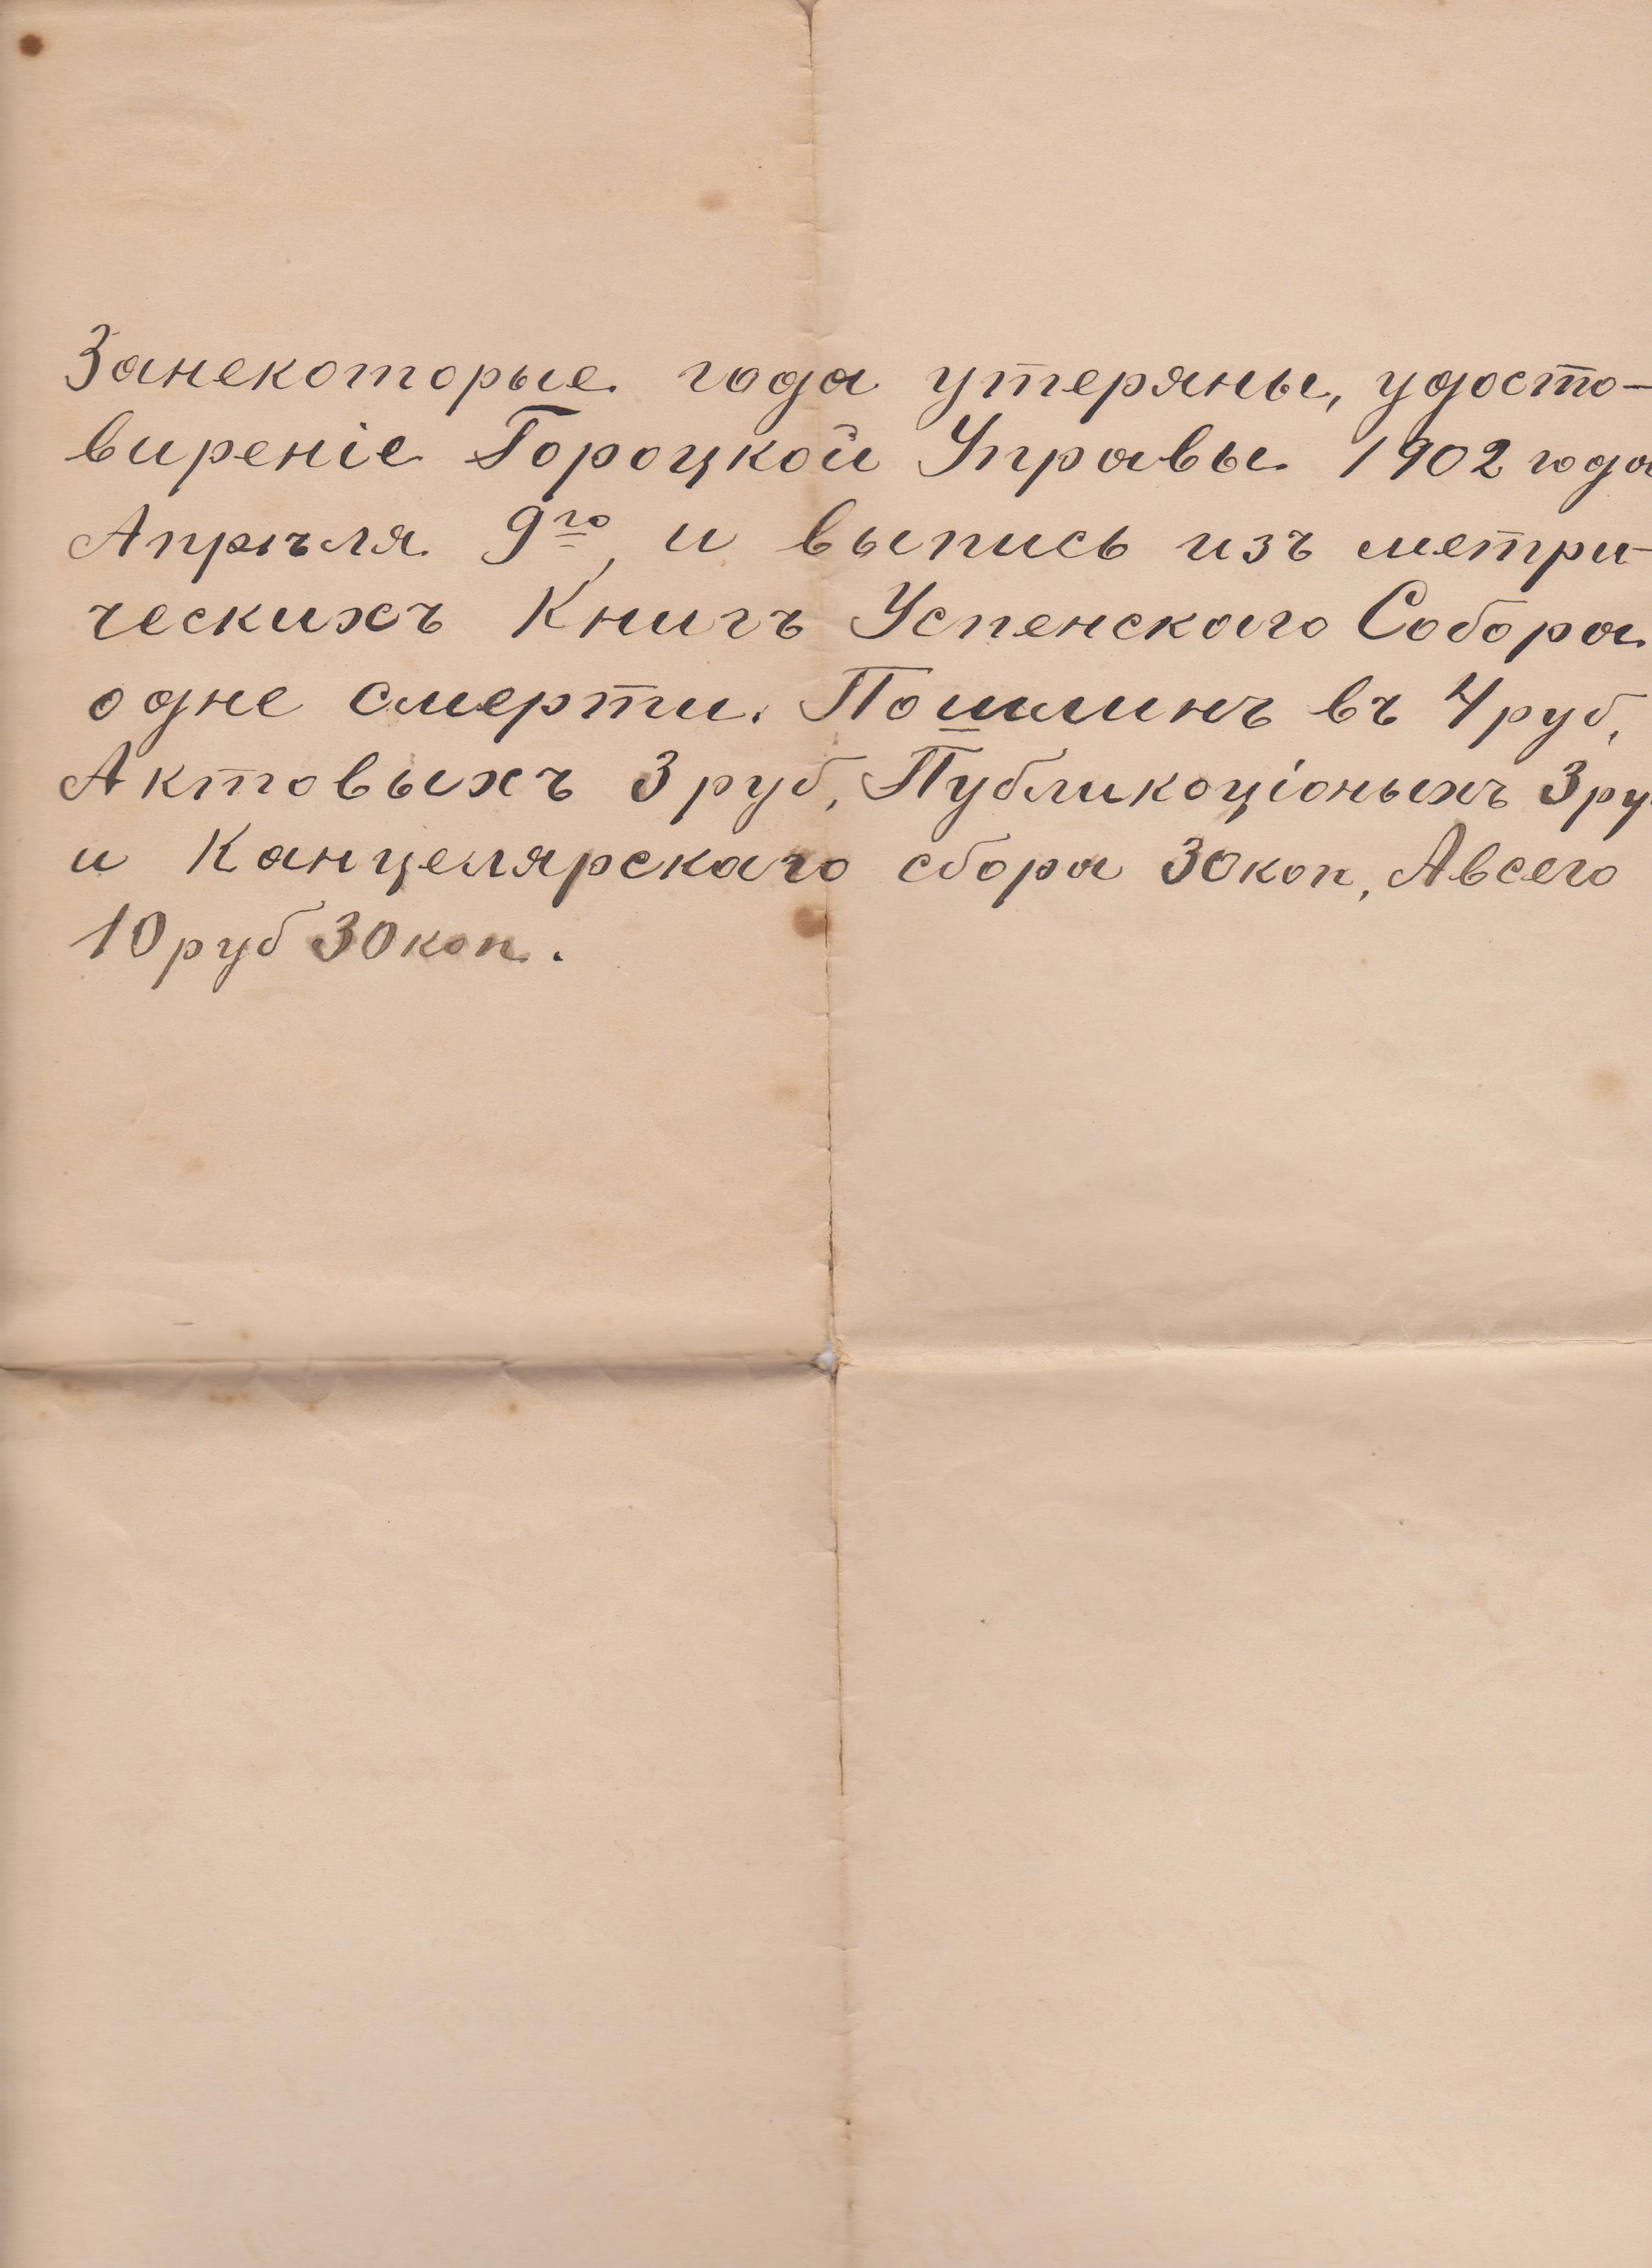 Занекоторые года утеряны, удосто-
виреніе Гороцкой Управы 1902 года
Апрѣля 9го, и выпись изъ метри-
ческихъ Книгъ Успенскаго Собора
одне смерти. Пошлинъ въ 4 руб,
Актовыхъ 3 руб, Публикоціоныхъ 3 ру
и Канцелярскаго сбора 30 коп, Авсего
10 руб 30 коп.